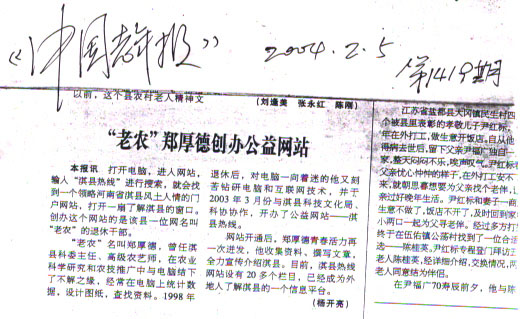 《中国老年报》
2004.2.5
第1419期
以前，这个县农村老人精神文
（刘逢美 张永红 陈刚）
“老农”郑厚德创办公益网站
本报讯 打开电脑，进入网站，
输入“淇县热线”进行搜索，就会找
到一个领略河南省淇县风土人情的门
户网站，打开一扇了解淇县的窗口。
创办这个网站的是该县一位网名叫
“老农”的退休干部。
“老农”名叫郑厚德，曾任淇
县科委主任、高级农艺师，在农业
科学研究和农技推广中与电脑结下
了不解之缘，经常在电脑上统计数
据，设计图纸，查找资料。1998年
退休后，对电脑一向着迷的他又刻
苦钻研电脑和互联网技术，并于
2003年3月份与淇县科技文化局、
科协协作，开办了公益网站——淇
县热线。
网站开通后，郑厚德青春活力再
一次迸发，他收集资料、撰写文章，
全力宣传介绍淇县。目前，淇县热线
网站设有20多个栏目，已经成为外
地人了解淇县的一个信息平台。
（杨开亮）
江苏省盐都县大冈镇民生村四
个被县里表彰的孝敬儿子尹红标，
年在外打工，做生意开饭店。自从他
得病去世后，留下父亲尹福广独自一
家，整天闷闷不乐，唉声叹气。尹红标
父亲忧心忡忡的样子，在外打工安不
来，就萌思着想要为父亲找个老伴，让
亲过好晚年生活。尹红标和妻子一商
生意不做了，饭店不开了，及时回到家
小两口一起为父寻老伴。经过多方打
终于在伍佑镇公汤村找到了一位合适
选——陈桂英，尹红标专程登门拜访
老人陈桂英，经详细介绍，交换情况，两
老人同意结为伴侣。
在尹福广70寿辰前夕，他与陈